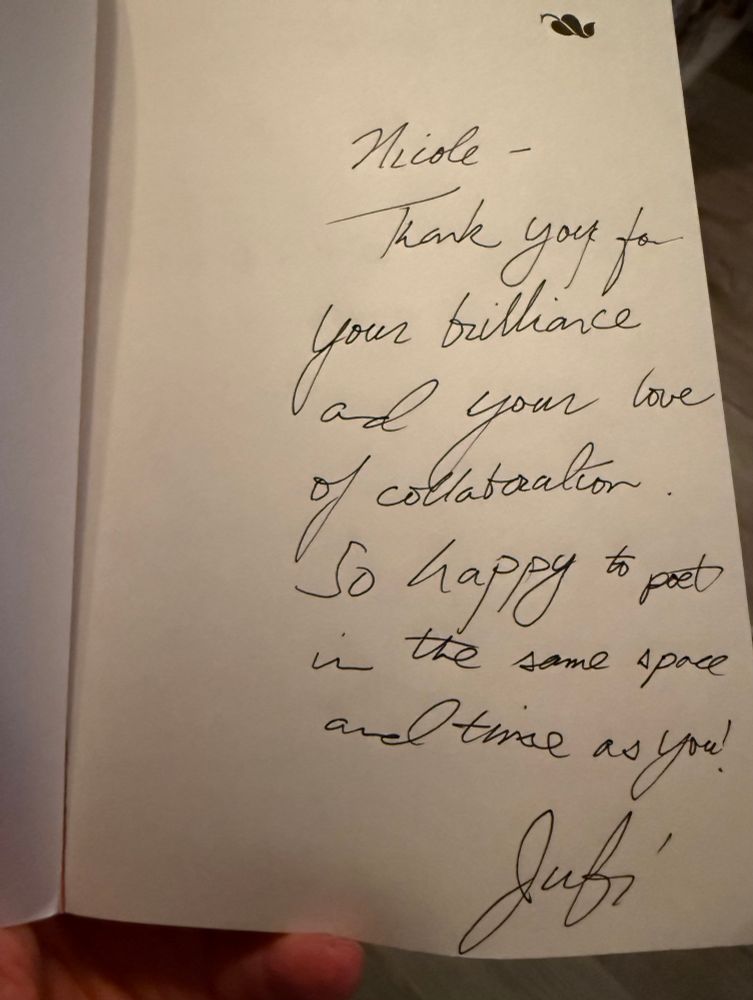 Nicole -
Thank you for
your brilliance
and your love
of collaboration.
So happy to poet
in the same space
and time as you!